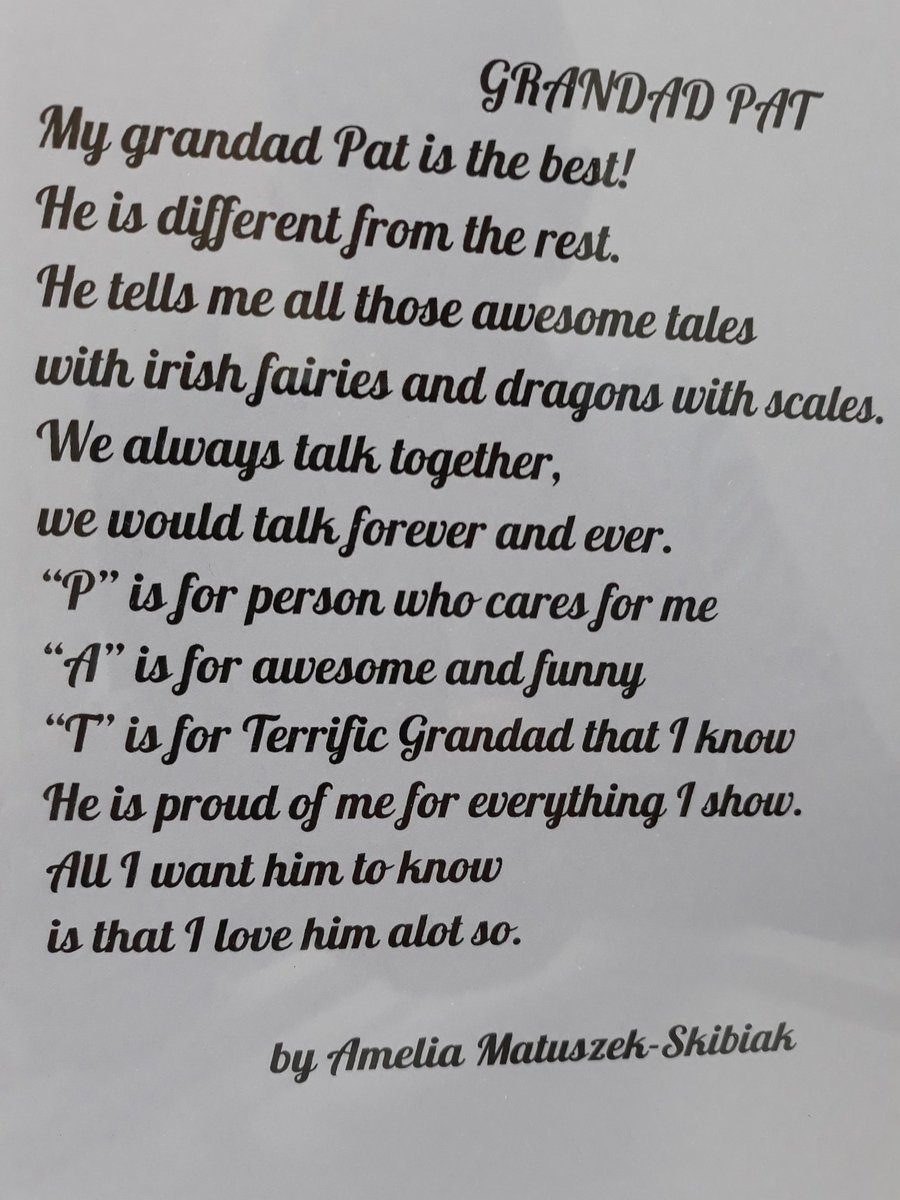 GRANDAD PAT
My grandad Pat is the best!
He is different from the rest.
He tells me all those awesome tales
with irish fairies and dragons with scales.
We always talk together,
we would talk forever and ever.
“P” is for person who cares for me
“A” is for awesome and funny
“T” is for Terrific Grandad that I know
He is proud of me for everything I show.
All I want him to know
is that I love him alot so.
by Amelia Matuszek-Skibiak